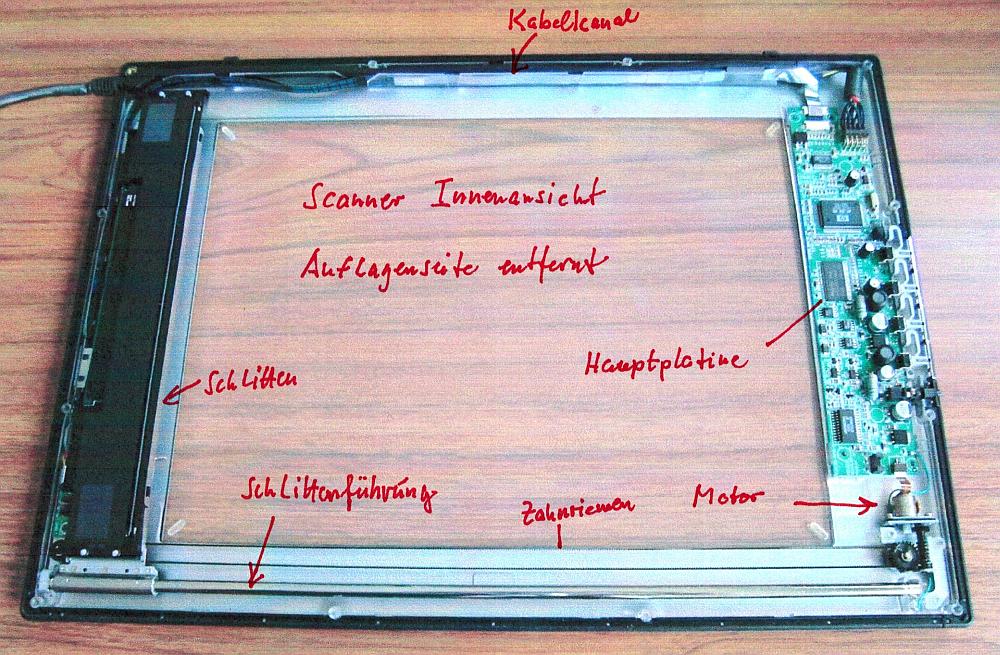 Kabelkanal
Scanner Innenansicht
Auflagenseite entfernt
Hauptplatine
Schlitten
Schlittenführung
Zahnriemen
Motor